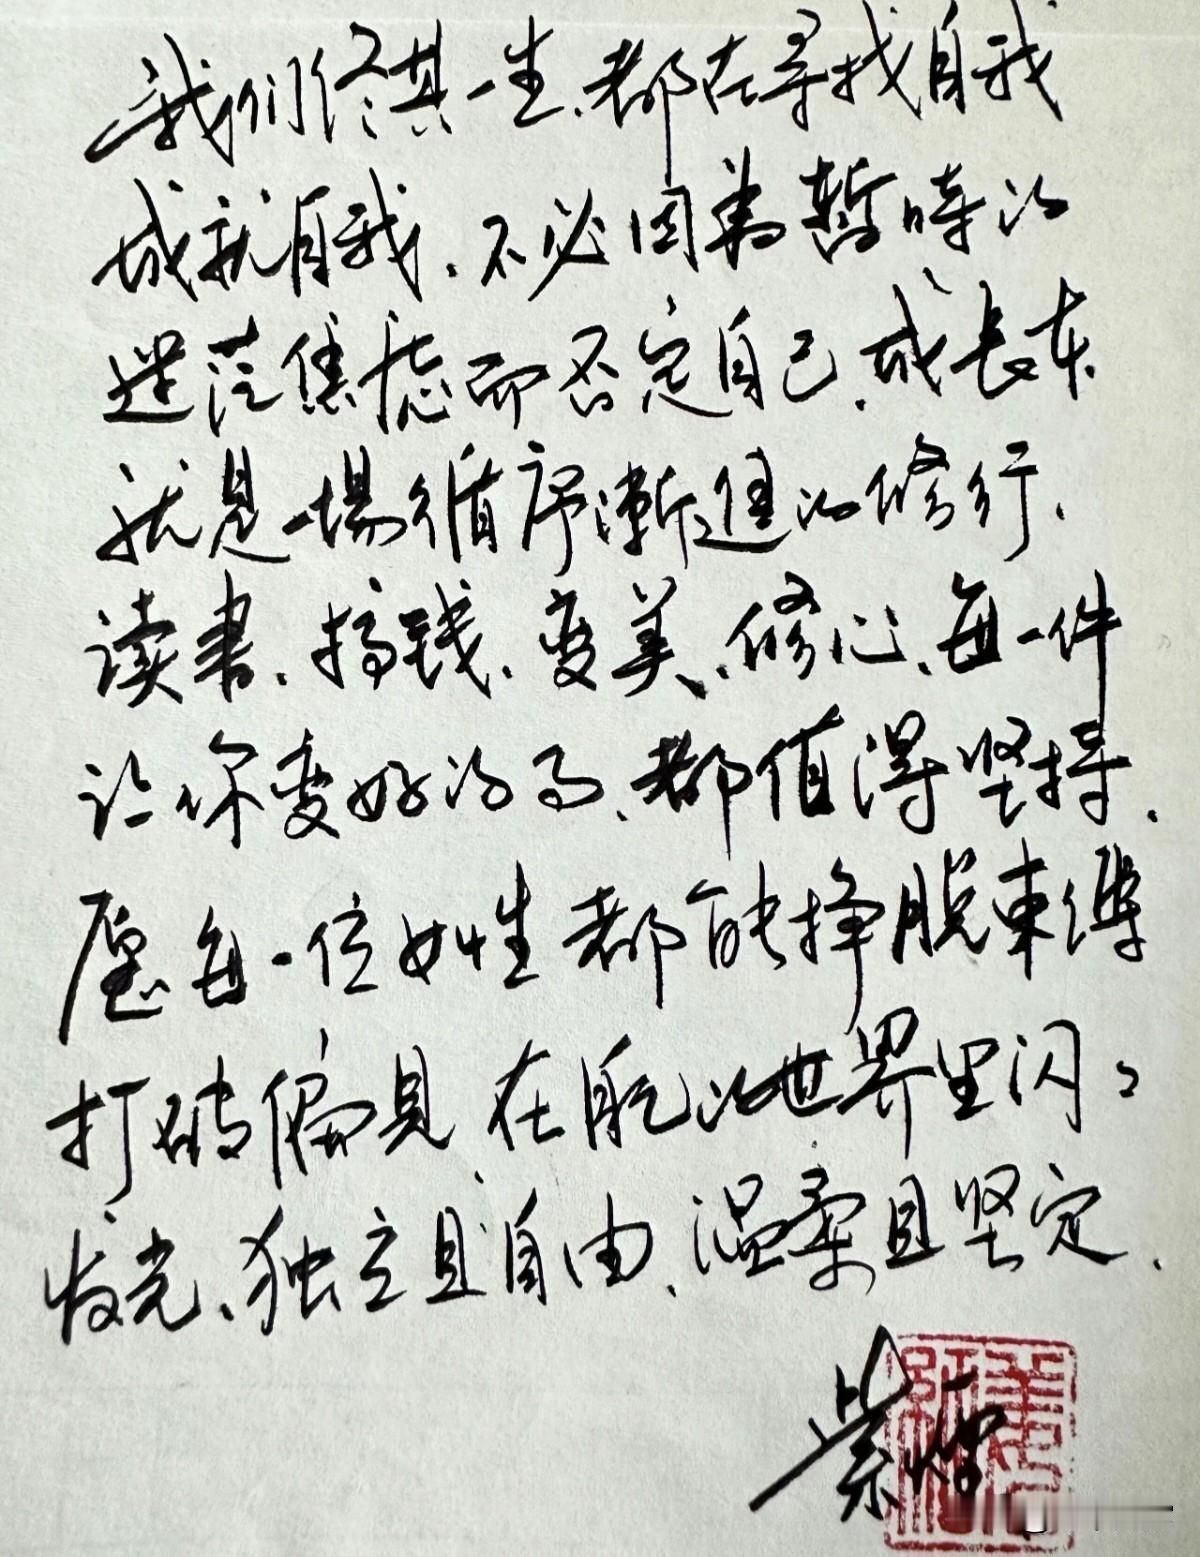 我们终其一生、都在寻找自我
成就自我.不必因為暂時的
迷茫焦虑而否定自己.成长本
就是一場循序渐進的修行.
读書、搞钱、变美、修心、每一件
让你变好的事、都值得坚持.
愿每一位女性都能挣脱束缚
打破偏見、在自己的世界里闪闪
发光、独立且自由、温柔且坚定.
紫煙